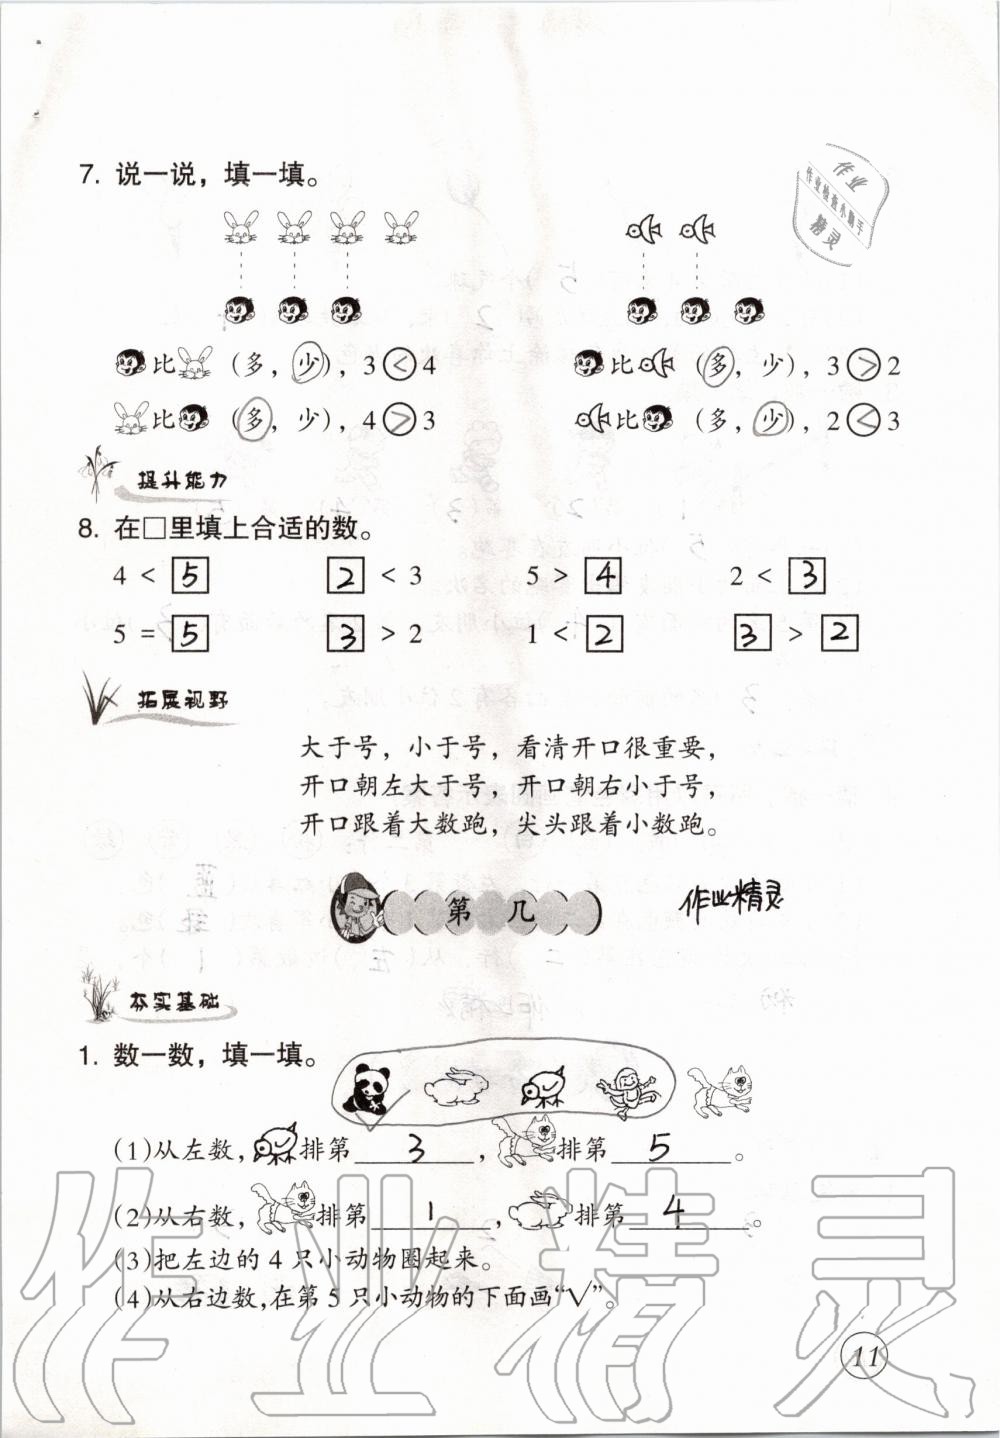 作业
作业检查小助手
精灵
7. 说一说，填一填。
比 （多，少），3 < 4
比 （多，少），3 > 2
比 （多，少），4 > 3
比 （多，少），2 < 3
提升能力
8. 在□里填上合适的数。
4 < 5 2 < 3 5 > 4 2 < 3
5 = 5 3 > 2 1 < 2 3 > 2
拓展视野
大于号，小于号，看清开口很重要，
开口朝左大于号，开口朝右小于号，
开口跟着大数跑，尖头跟着小数跑。
第几
作业精灵
夯实基础
1. 数一数，填一填。
(1)从左数， 排第 3 ， 排第 5 。
(2)从右数， 排第 1 ， 排第 4 。
(3)把左边的 4 只小动物圈起来。
(4)从右边数，在第 5 只小动物的下面画“√”。
作业精灵
11